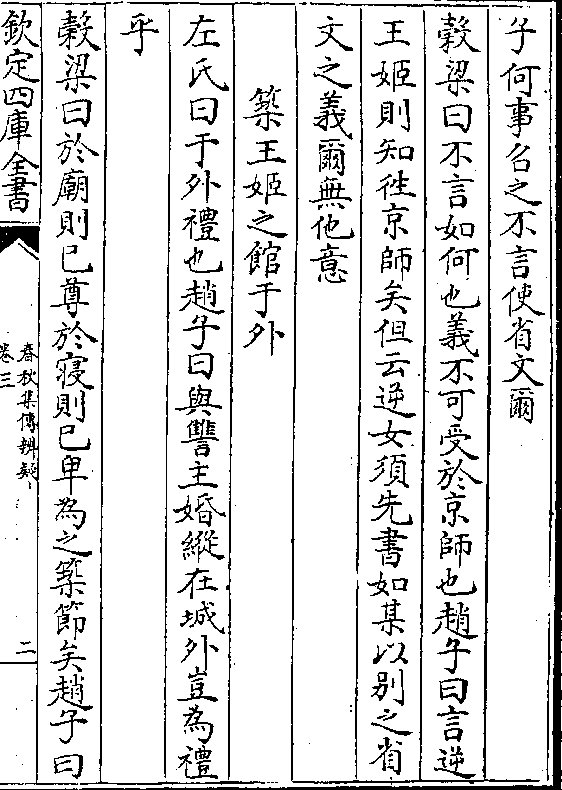 子何事召之不言使省文爾
穀梁曰不言如何也義不可受於京師也趙子曰言逆
王姬則知徃京師矣但云逆女須先書如某以别之省
文之義爾無他意
築王姬之館于外
左氏曰于外禮也趙子曰與讐主婚縱在城外豈為禮
乎
穀梁曰於廟則已尊於寝則已卑為之築節矣趙子曰
欽定四庫全書
春秋集傳辨疑
卷三
二